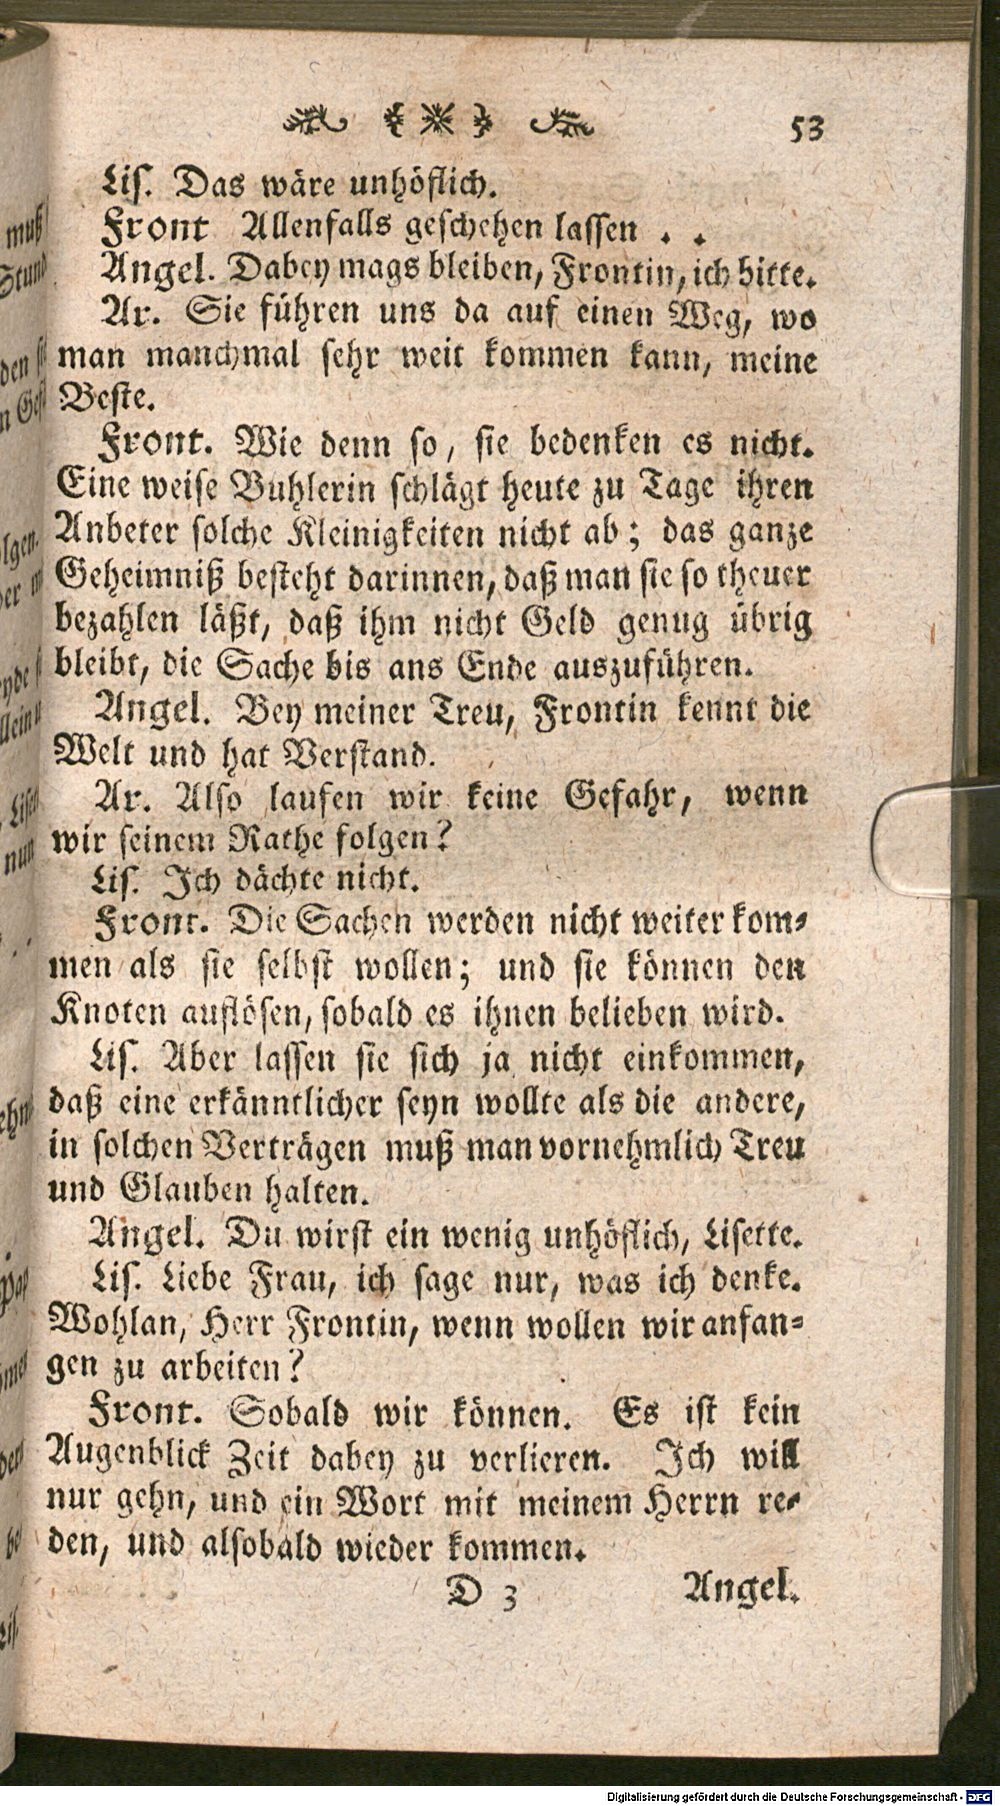 53
Lis. Das wäre unhöflich.
Front Allenfalls geschehen lassen . .
Angel. Dabey mags bleiben, Frontin, ich bitte.
Ar. Sie führen uns da auf einen Weg, wo
man manchmal sehr weit kommen kann, meine
Beste.
Front. Wie denn so, sie bedenken es nicht.
Eine weise Buhlerin schlägt heute zu Tage ihren
Anbeter solche Kleinigkeiten nicht ab; das ganze
Geheimniß besteht darinnen, daß man sie so theuer
bezahlen läßt, daß ihm nicht Geld genug übrig
bleibt, die Sache bis ans Ende auszuführen.
Angel. Bey meiner Treu, Frontin kennt die
Welt und hat Verstand.
Ar. Also laufen wir keine Gefahr, wenn
wir seinem Rathe folgen?
Lis. Ich dächte nicht.
Front. Die Sachen werden nicht weiter kom-
men als sie selbst wollen; und sie können den
Knoten auflösen, sobald es ihnen belieben wird.
Lis. Aber lassen sie sich ja nicht einkommen,
daß eine erkänntlicher seyn wollte als die andere,
in solchen Verträgen muß man vornehmlich Treu
und Glauben halten.
Angel. Du wirst ein wenig unhöflich, Lisette.
Lis. Liebe Frau, ich sage nur, was ich denke.
Wohlan, Herr Frontin, wenn wollen wir anfan-
gen zu arbeiten?
Front. Sobald wir können. Es ist kein
Augenblick Zeit dabey zu verlieren. Ich will
nur gehn, und ein Wort mit meinem Herrn re-
den, und alsobald wieder kommen.
D 3 Angel.
Digitalisierung gefördert durch die Deutsche Forschungsgemeinschaft - DFG